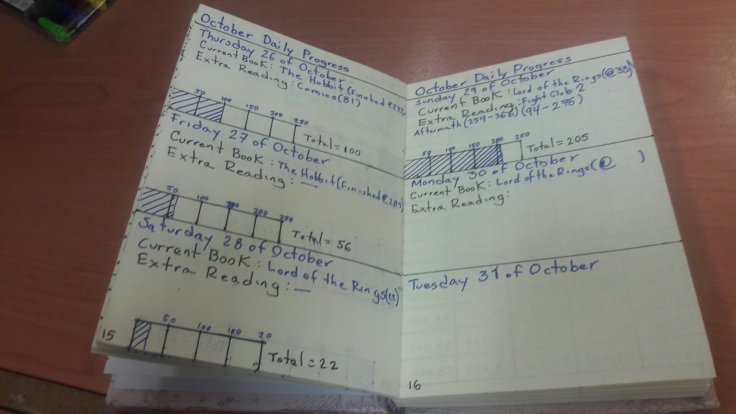 October Daily Progress
Thursday 26 of October
Current Book: The Hobbit (Finished @
Extra Reading: Comics (81)
50 100 150 200 250
Total = 100
Friday 27 of October
Current Book: The Hobbit (Finished @
Extra Reading: —
50 100 200 250
Total = 56
Saturday 28 of October
Current Book: Lord of the Rings
Extra Reading: —
50 100 150 20
Total = 22
15
October Daily Progress
Sunday 29 of October
Current Book: Lord of the Rings (@
Extra Reading: Fight Club 2
Aftermath (354-366) (94-296)
50 100 150 200 250
Total = 205
Monday 30 of October
Current Book: Lord of the Rings (@ )
Extra Reading:
Tuesday 31 of October
16